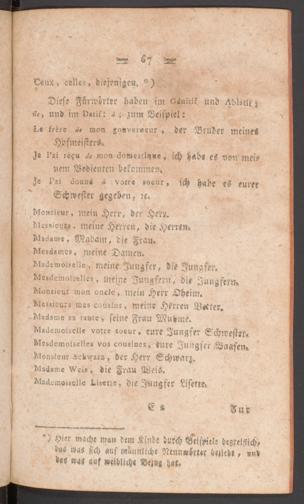 67
Ceux, celles, diejenigen. *)
Diese Fürwörter haben im Génitif und Ablatif:
de, und im Datif: à; zum Beispiel:
Le frère de mon gouverneur, der Bruder meines
Hofmeisters.
Je l'ai reçu de mon domestique, ich habe es von mei-
nem Bedienten bekommen.
Je l'ai donné à votre soeur, ich habe es eurer
Schwester gegeben, ic.
Monsieur, mein Herr, der Herr.
Messieurs, meine Herren, die Herren.
Madame, Madam, die Frau.
Mesdames, meine Damen.
Mademoiselle, meine Jungfer, die Jungfer.
Mesdemoiselles, meine Jungfern, die Jungfern.
Monsieur mon oncle, mein Herr Oheim.
Messieurs mes cousins, meine Herren Vetter.
Madame sa tante, seine Frau Muhme.
Mademoiselle votre soeur, eure Jungfer Schwester.
Mesdemoiselles vos cousines, eure Jungfer Baasen.
Monsieur Schwarz, der Herr Schwarz.
Madame Weis, die Frau Weis.
Mademoiselle Lisette, die Jungfer Lisette.
E 2 Für
*) Hier mache man dem Kinde durch Beispiele begreiflich,
das was sich auf männliche Nennwörter bezieht, und
das was auf weibliche Bezug hat.